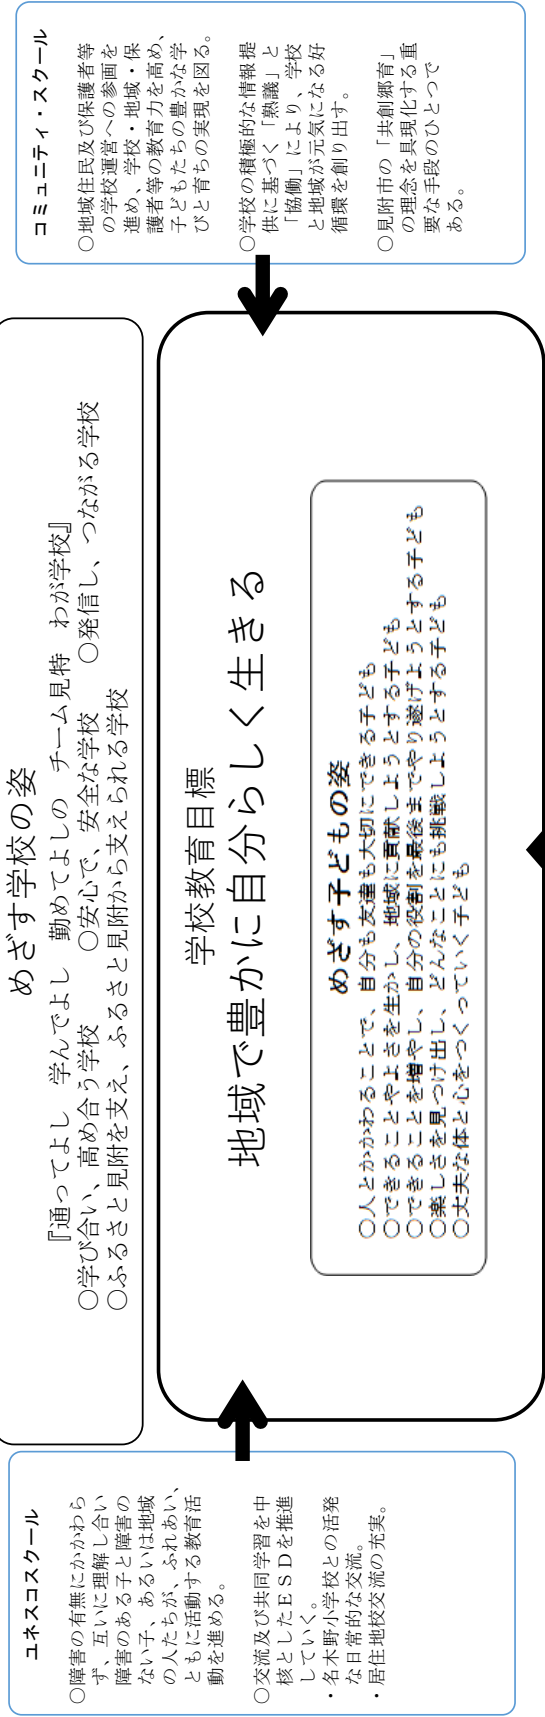 めざす学校の姿
『通ってよし　学んでよし　勤めてよしの　チーム見特　わが学校』
○学び合い、高め合う学校　　○安心で、安全な学校　　○発信し、つながる学校
○ふるさと見附を支え、ふるさと見附から支えられる学校
ユネスコスクール
○障害の有無にかかわら
ず、互いに理解し合い
障害のある子と障害の
ない子、あるいは地域
の人たちが、ふれあい、
ともに活動する教育活
動を進める。
○交流及び共同学習を中
核としたＥＳＤを推進
していく。
・名木野小学校との活発
な日常的な交流。
・居住地校交流の充実。
学校教育目標
地域で豊かに自分らしく生きる
めざす子どもの姿
○人とかかわることで、自分も友達も大切にできる子ども
○できることやよさを生かし、地域に貢献しようとする子ども
○できることを増やし、自分の役割を最後までやり遂げようとする子ども
○楽しさを見つけ出し、どんなことにも挑戦しようとする子ども
○丈夫な体と心をつくっていく子ども
コミュニティ・スクール
○地域住民及び保護者等
の学校運営への参画を
進め、学校・地域・保
護者等の教育力を高め、
子どもたちの豊かな学
びと育ちの実現を図る。
○学校の積極的な情報提
供に基づく「熟議」と
「協働」により、学校
と地域が元気になる好
循環を創り出す。
○見附市の「共創郷育」
の理念を具現化する重
要な手段のひとつで
ある。